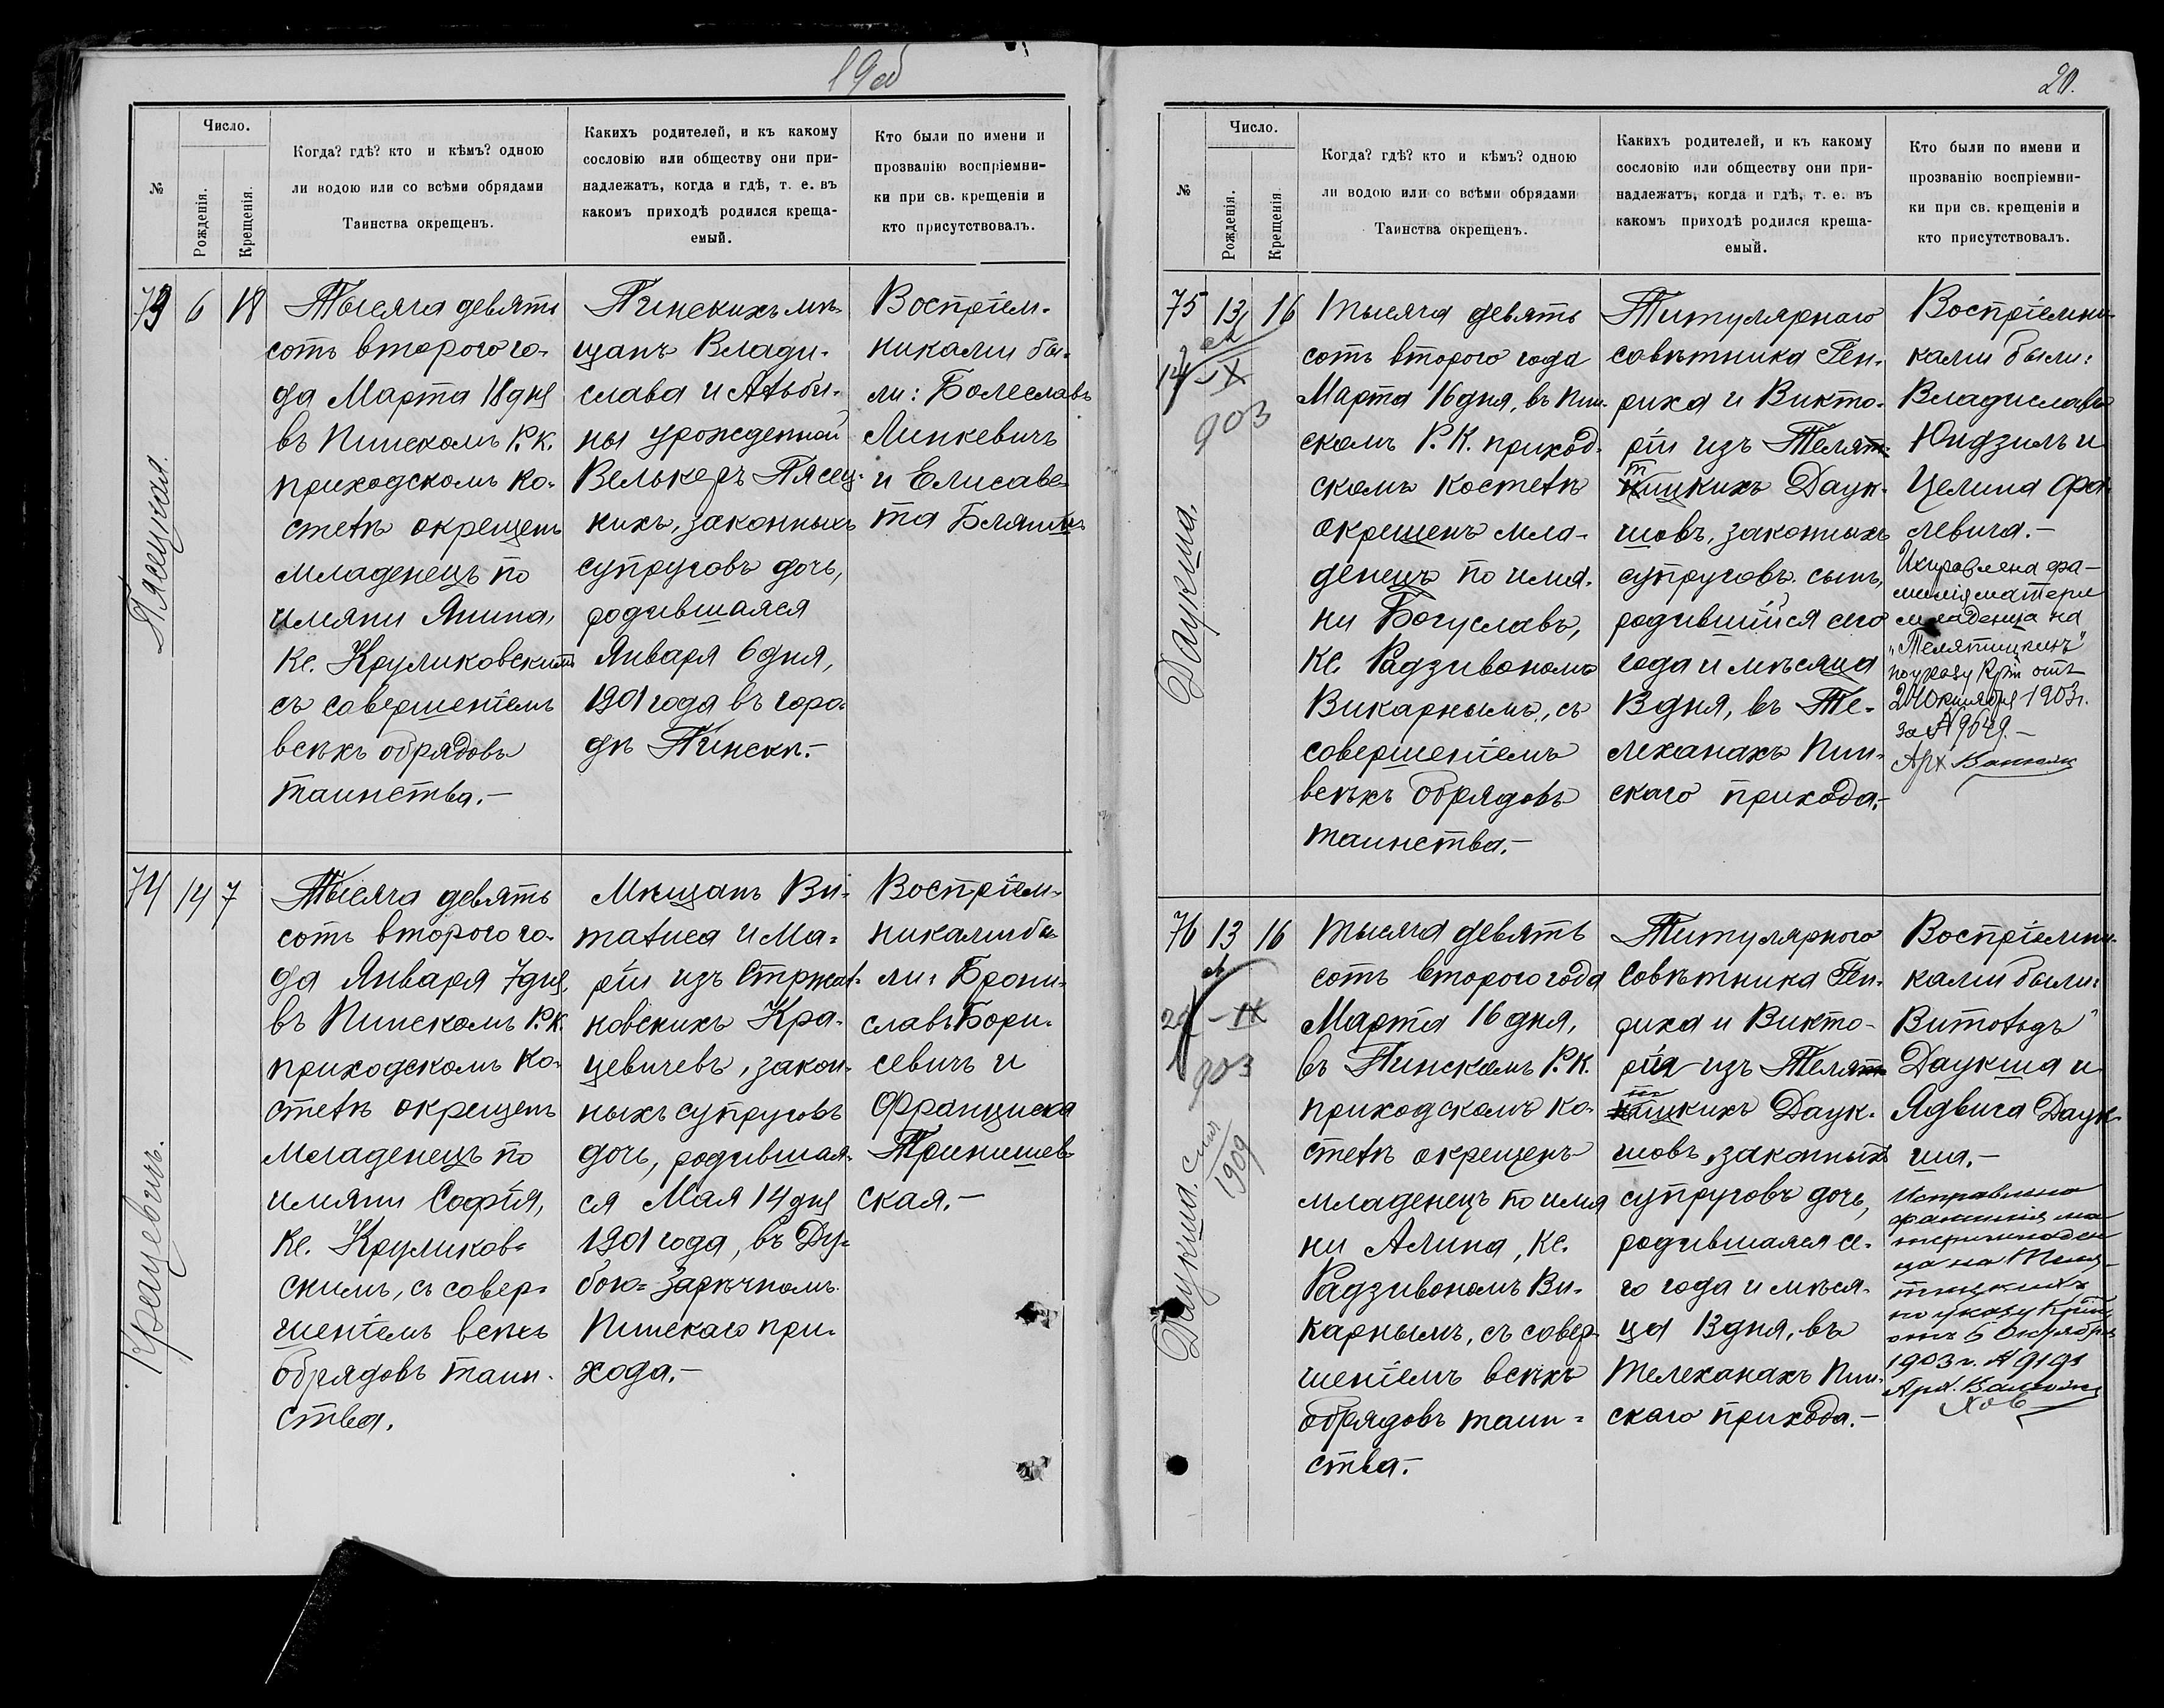 19об
№
Число.
Рожденія.
Крещенія.
Когда? гдѣ? кто и кѣмъ? одною
ли водою или со всѣми обрядами
Таинства окрещенъ.
Какихъ родителей, и къ какому
сословію или обществу они при-
надлежатъ, когда и гдѣ, т. е. въ
какомъ приходѣ родился креща-
емый.
Кто были по имени и
прозванію воспріемни-
ки при св. крещеніи и
кто присутствовалъ.
73
6
18
Пясецкая.
Тысяча девять
сотъ второго го-
да Марта 18 дня
въ Пинскомъ Р. К.
приходскомъ ко-
стелѣ окрещенъ
младенецъ по
имяни Янина,
Кс. Круликовскимъ
съ совершеніемъ
всѣхъ обрядовъ
таинства.-
Пинскихъ мѣ-
щанъ Влади-
слава и Альби-
ны урожденной
Велькеръ Пясец-
кихъ, законныхъ
супруговъ дочь,
родившаяся
Января 6 дня,
1901 года въ горо-
дѣ Пинскѣ.-
Воспріем-
никами бы-
ли: Болеславъ
Линкевичъ
и Елисаве-
та
74
14
7
Крацевичъ.
Тысяча девять
сотъ второго го-
да Января 7 дня,
въ Пинскомъ Р. К.
приходскомъ ко-
стелѣ окрещенъ
младенецъ по
имяни Софія,
Кс. Круликов-
скимъ, съ совер-
шеніемъ всѣхъ
обрядовъ таин-
ства.
Мѣщанъ Ви-
талиса и Ма-
ріи изъ Стржал-
ковскихъ Кра-
цевичевъ, закон-
ныхъ супруговъ
дочь, родившая-
ся Мая 14 дня
1901 года, въ Ду-
бою-Зарѣчномъ
Пинскаго при-
хода.-
Воспріем-
никами бы-
ли: Брони-
славъ Бори-
севичъ и
Франциска
Тринишев-
ская.-
20.
№
Число.
Рожденія.
Крещенія
Когда? гдѣ? кто и кѣмъ? одною
ли водою или со всѣми обрядами
Таинства окрещенъ.
Какихъ родителей, и къ какому
сословію или обществу они при-
надлежатъ, когда и гдѣ, т. е. въ
какомъ приходѣ родился креща-
емый.
Кто были по имени и
прозванію воспріемни-
ки при св. крещеніи и
кто присутствовалъ.
75
13
16
IX
903
Даукша.
Тысяча девять
сотъ второго года
Марта 16 дня, въ Пин-
скомъ Р. К. приход-
скомъ костелѣ
окрещенъ мла-
денецъ по имя-
ни Богуславъ,
Кс. Радзивономъ
Викарнымъ, съ
совершеніемъ
всѣхъ обрядовъ
таинства.-
Титулярнаго
совѣтника Ген-
риха и Викто-
ріи изъ Телят-
ицкихъ Даук-
шовъ, законныхъ
супруговъ сынъ,
родившійся сего
года и мѣсяца
13 дня, въ Те-
леханахъ Пин-
скаго прихода.-
Воспріемни-
ками были:
Владиславъ
Юндзилъ и
Целина
левича.-
Исправлена фа-
милія матери
младенца на
„Телятицкихъ"
по указу Кріи отъ
24 Октября 1903 г.
за № 9649.-
76
13
16
IX
903
1909
Даукша.
Тысяча девять
сотъ второго года
Марта 16 дня,
въ Пинскомъ Р. К.
приходскомъ ко-
стелѣ окрещенъ
младенецъ по имя
ни Алина, Кс.
Радзивономъ Ви-
карнымъ, съ совер-
шеніемъ всѣхъ
обрядовъ таин-
ства.-
Титулярного
Совѣтника Ген-
риха и Викто-
рія изъ Телят-
ицкихъ Даук-
шовъ, законныхъ
супруговъ дочь,
родившаяся се-
го года и мѣся-
ца 13 дня, въ
Телеханахъ Пин-
скаго прихода.-
Воспріемни-
ками были:
Витольдъ
Даукша и
Ядвига Даук-
ша.-
Исправлена
фамилія ма
тери младен
ца на Теля-
тицкихъ
по указу Кріи
отъ 6 Октября
1903 г. № 9191